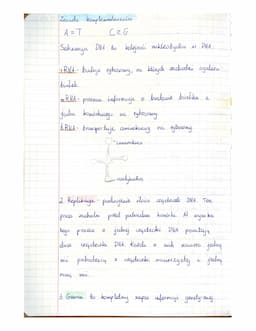 Zasada komplementarności
A = T C ≡ G
Sekwencja DNA to kolejność nukleotydów w DNA.
rRNA - buduje rybosomy, na których zachodzi synteza
białek.
mRNA - przenosi informację o budowie białka z
jądra komórkowego na rybosomy.
tRNA - transportuje aminokwasy na rybosomy.
aminokwas
antykodon
2. Replikacja - podwojenie ilości cząsteczki DNA. Ten
proces zachodzi przed podziałem komórki. W wyniku
tego procesu z jednej cząsteczki DNA powstają
dwie cząsteczki DNA. Każda z nich zawiera jedną
nić pochodzącą z cząsteczki macierzystej i jedną
nową nić.
3. Genom to kompletny zapis informacji genetycznej